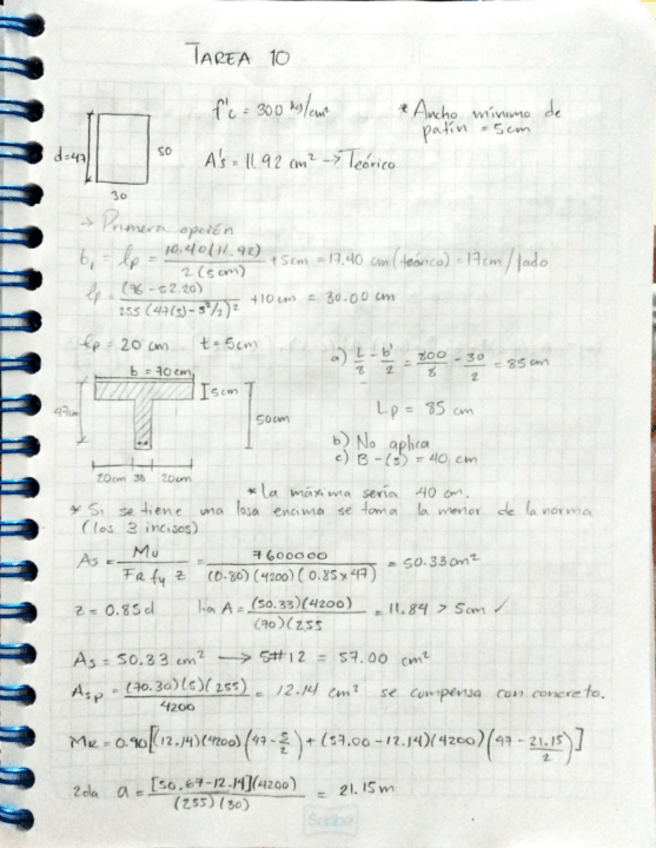 TAREA 10
f'c = 300 kg/cm²
* Ancho mínimo de
patín = 5cm
d=47
50
A's = 11.92 cm² → Teórico
30
→ Primera opción
b₁ = lp = 10.40(11.92) / 2(5cm) + 5cm = 17.40 cm (teórico) = 17cm/lado
lp = (76 - 52.20) / 255(47(5) - 5²/2)2 + 10cm = 30.00 cm
lp = 20 cm t = 5cm
a) L/8 - b'/2 = 800/8 - 30/2 = 85 cm
b = 70cm
5cm
47cm
50cm
Lp = 85 cm
b) No aplica
c) B-(5) = 40 cm
20cm 30 20cm
* La máxima sería 40 cm.
* Si se tiene una losa encima se toma la menor de la norma
(los 3 incisos)
As = Mu / FR fy z = 7600000 / (0.80)(4200)(0.85x47) = 50.33cm²
z = 0.85d 1ia A = (50.33)(4200) / (70)(255 = 11.84 > 5cm ✓
As = 50.33 cm² → 5#12 = 57.00 cm²
Asp = (70.30)(5)(255) / 4200 = 12.14 cm² se compensa con concreto.
MR = 0.90[(12.14)(4200)(47 - 5/2) + (57.00 - 12.14)(4200)(47 - 21.15/2)]
2da a = [50.67-12.14](4200) / (255)(30) = 21.15m
Scribe